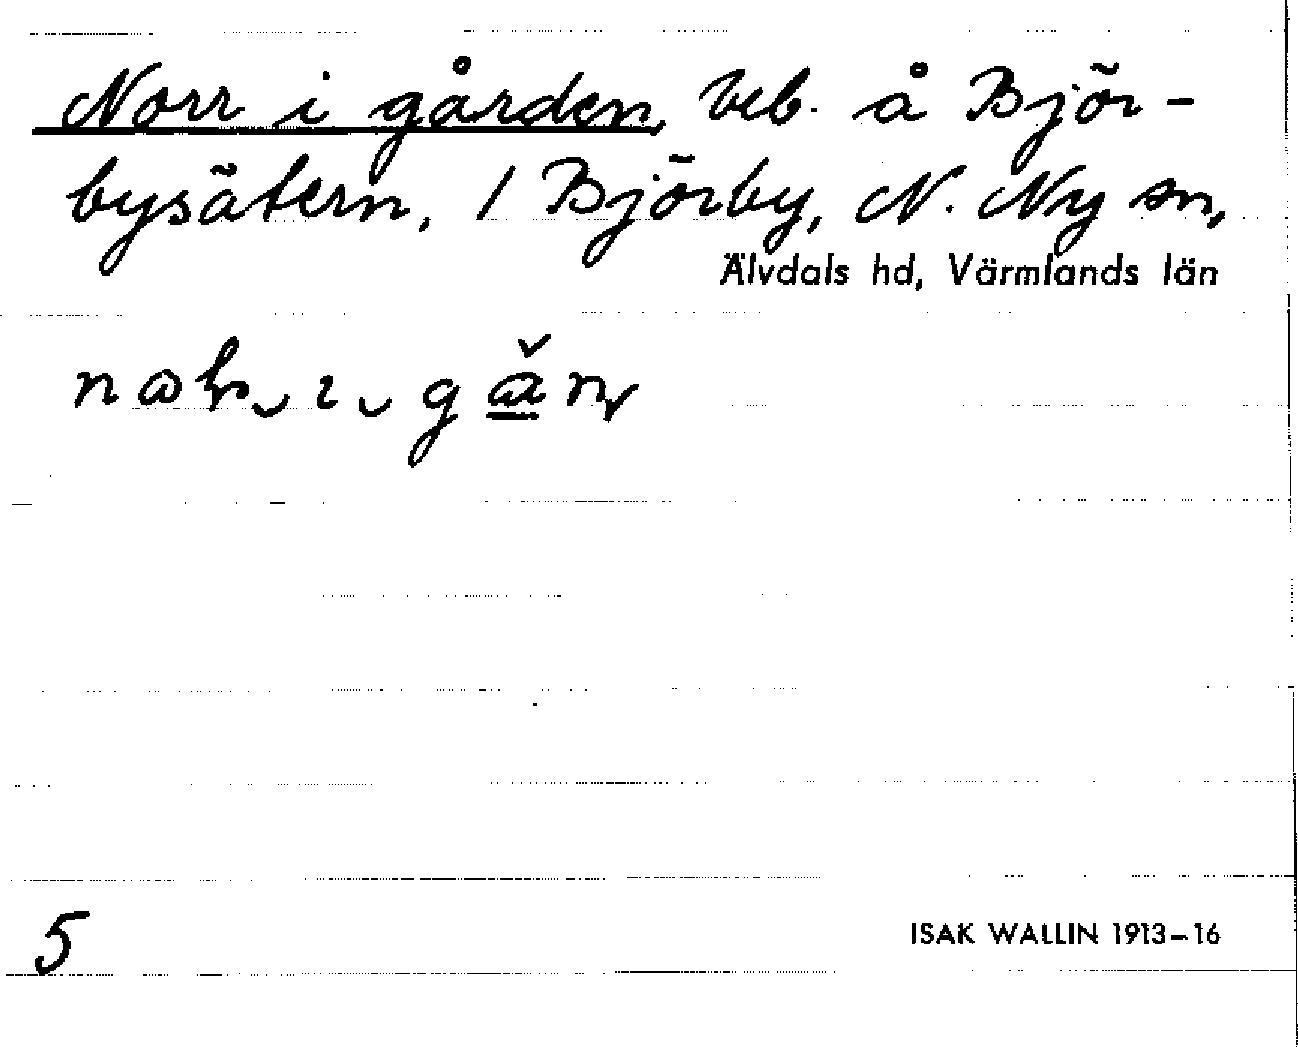 Norr i gården, beb. å Björ-
bysätern, 1 Björby, N. Ny sn,
Älvdals hd, Värmlands län
5
ISAK WALLIN 1913–16